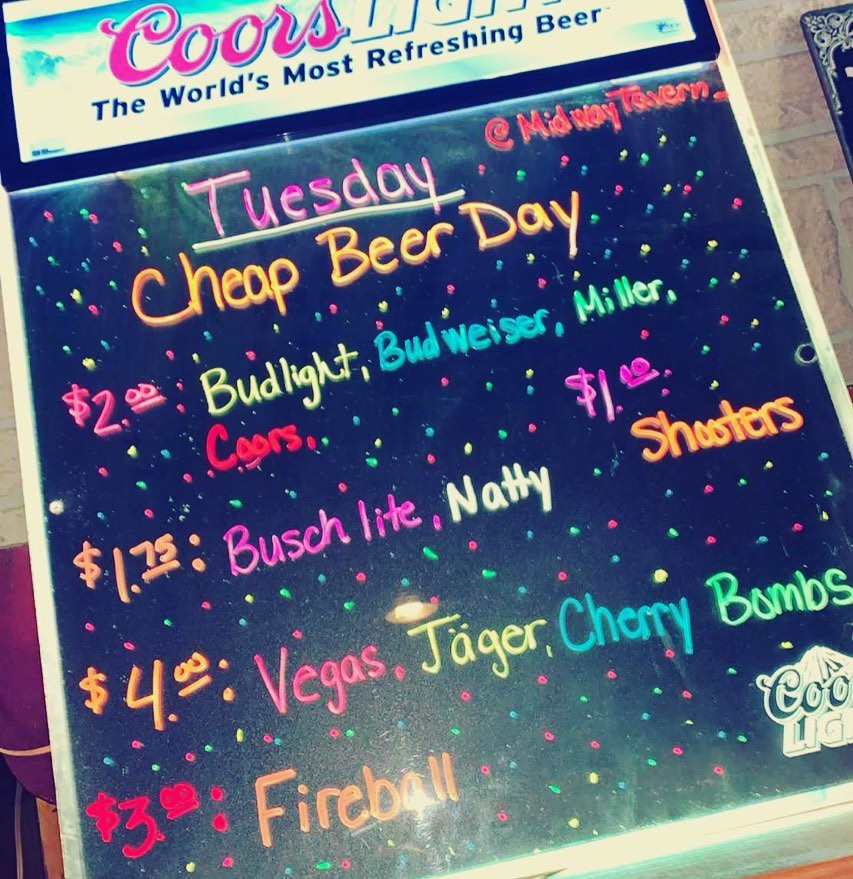 Coors LIGHT
The World's Most Refreshing Beer
@MidwayTavern_
Tuesday
Cheap Beer Day
$2.00: Budlight, Budweiser, Miller,
Coors,
$1.00
Shooters
$1.75: Busch lite, Natty
$4.00: Vegas, Jäger, Cherry Bombs
$3.00: Fireball
Coo
LIG